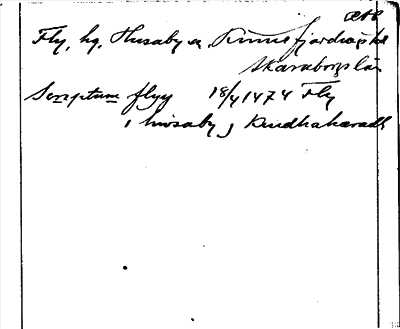 Fly, hg, Husaby sn, Kinnefjärdings hd
Skaraborgs län
Scriptum flyy 18/4 1474 Fly
i hwsaby j Kindhahæradh